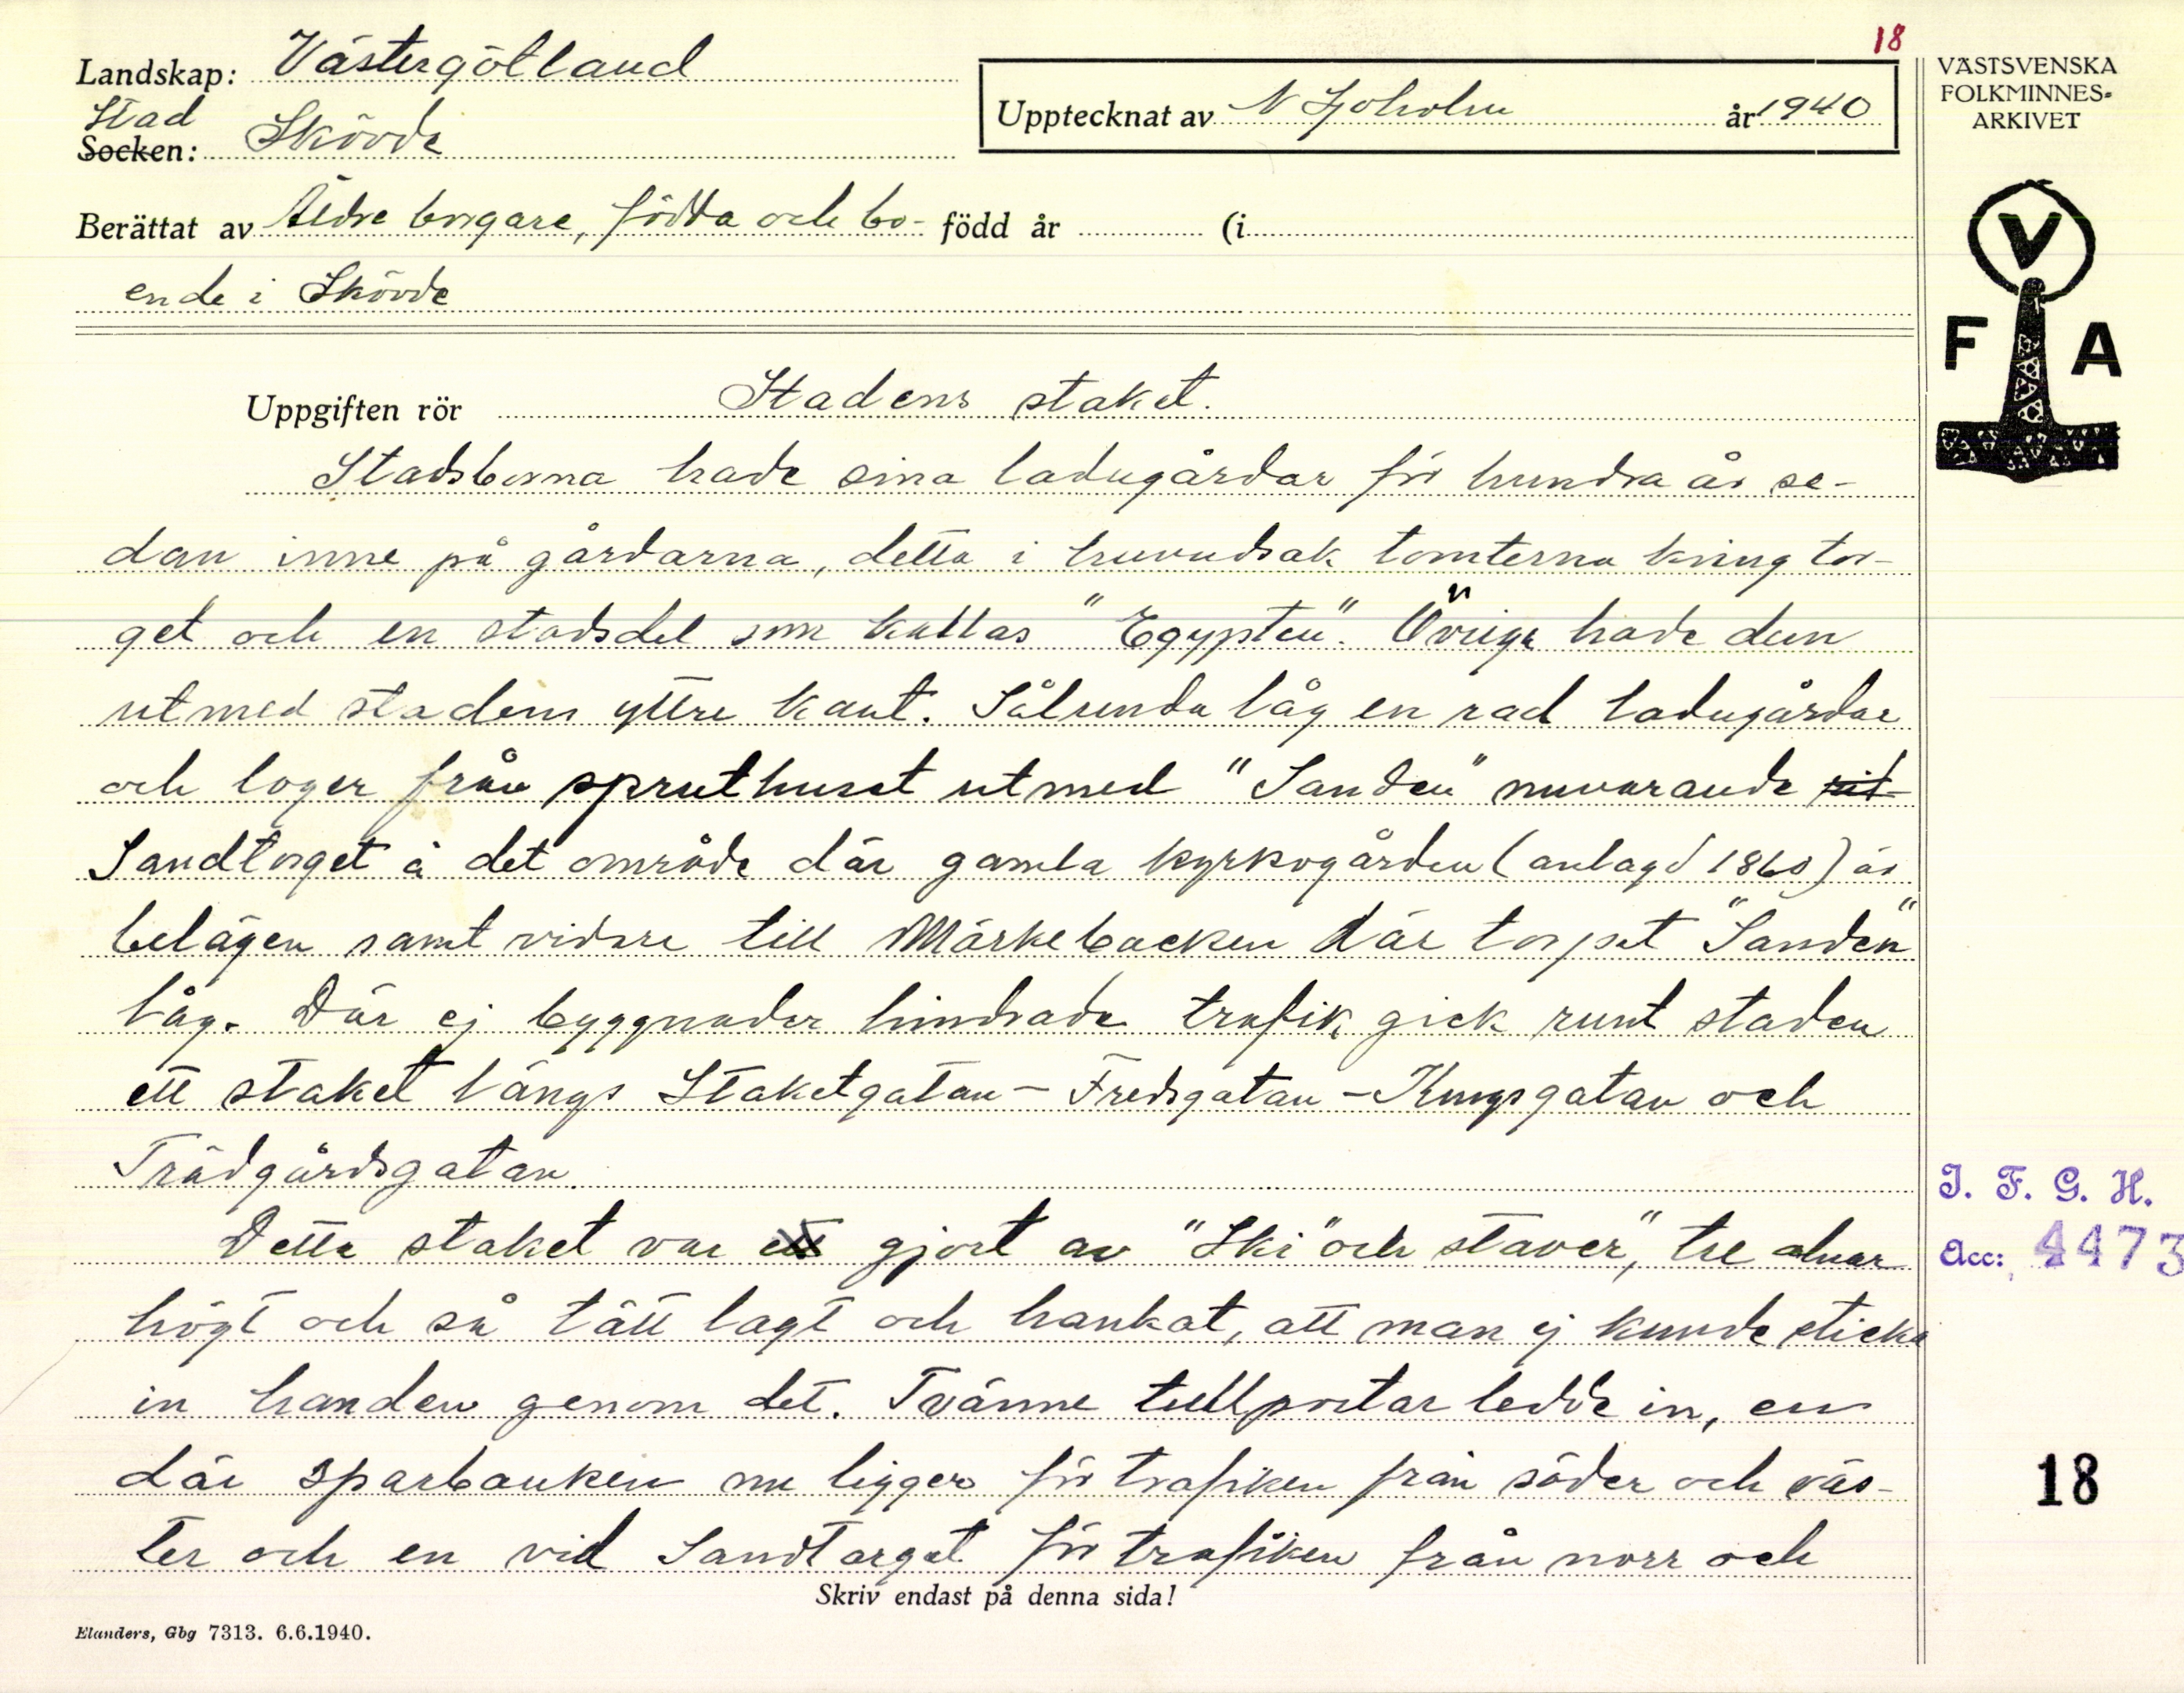 18
Landskap: Västergötland
Stad
Socken: Skövde
Upptecknat av N Sjöholm år 1940
VÄSTSVENSKA
FOLKMINNES-
ARKIVET
V
F A
Berättat av Äldre borgare, födda och bo- född år (i
ende i Skövde
Uppgiften rör Stadens staket.
Stadsborna hade sina ladugårdar för hundra år se-
dan inne på gårdarna, detta i huvudsak tomterna kring tor-
get och en stadsdel som kallas "Egypten". Övriga hade dem
utmed stadens yttre kant. Sålunda låg en rad ladugårdar
och loger från spruthuset utmed "Sanden" nuvarande
Sandtorget å det område där gamla kyrkogården (anlagd 1860) är
belägen samt vidare till Märkebacken där torpet "Sanden"
låg. Där ej byggnader hindrade trafik gick runt staden
ett staket längs Staketgatan - Fredsgatan - Kungsgatan och
Trädgårdsgatan.
Detta staket var ett gjort av "Ski" och stäver", tre alnar
högt och så tätt lagt och hankat, att man ej kunde sticka
in handen genom det. Tvänne tullportar ledde in, en
där sparbanken nu ligger för trafiken från söder och väs-
ter och en vid Sandtorget för trafiken från norr och
I. F. G. H.
Acc: 4473
18
Skriv endast på denna sida!
Elanders, Gbg 7313. 6.6.1940.